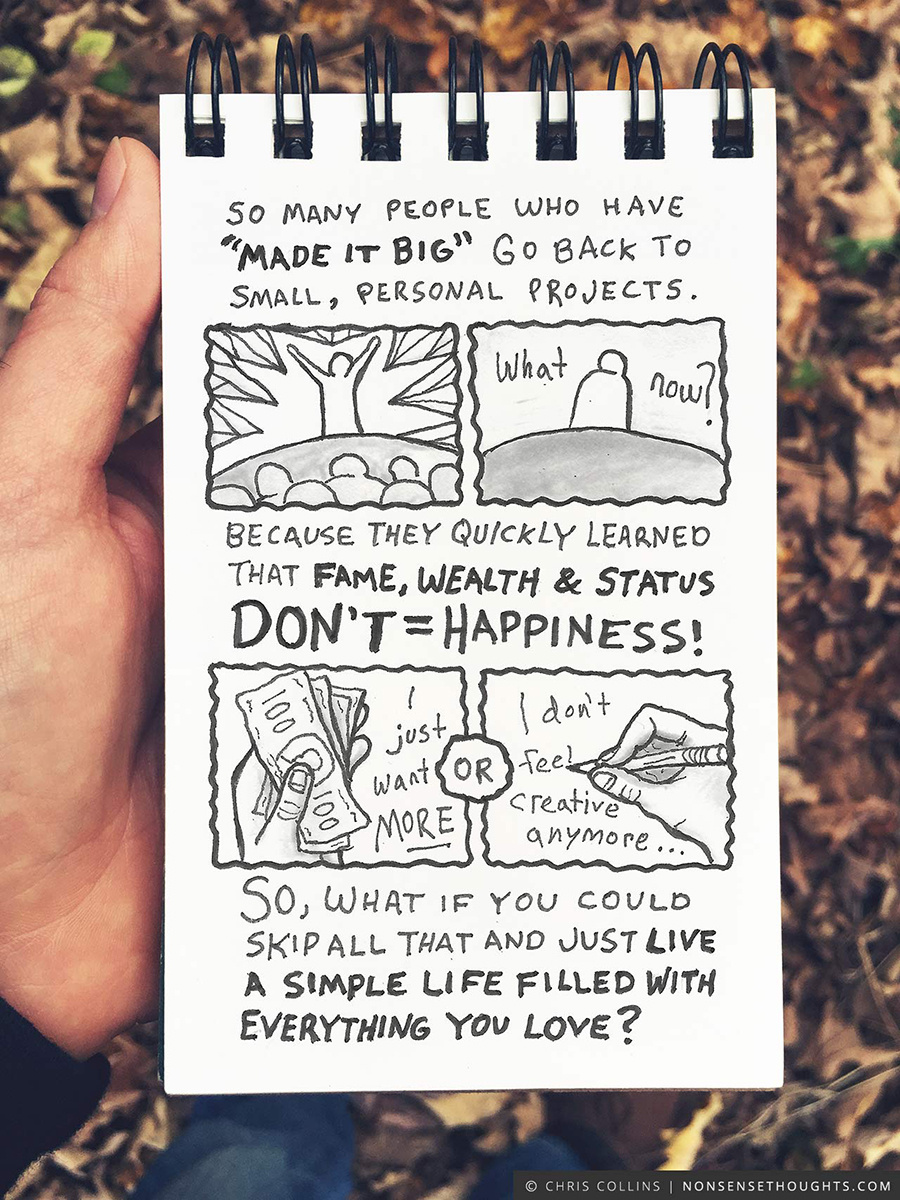 SO MANY PEOPLE WHO HAVE
"MADE IT BIG" GO BACK TO
SMALL, PERSONAL PROJECTS.
What now?
BECAUSE THEY QUICKLY LEARNED
THAT FAME, WEALTH & STATUS
DON'T = HAPPINESS!
I
just
want
MORE
OR
I don't
feel
creative
anymore...
SO, WHAT IF YOU COULD
SKIP ALL THAT AND JUST LIVE
A SIMPLE LIFE FILLED WITH
EVERYTHING YOU LOVE?
© CHRIS COLLINS | NONSENSETHOUGHTS.COM